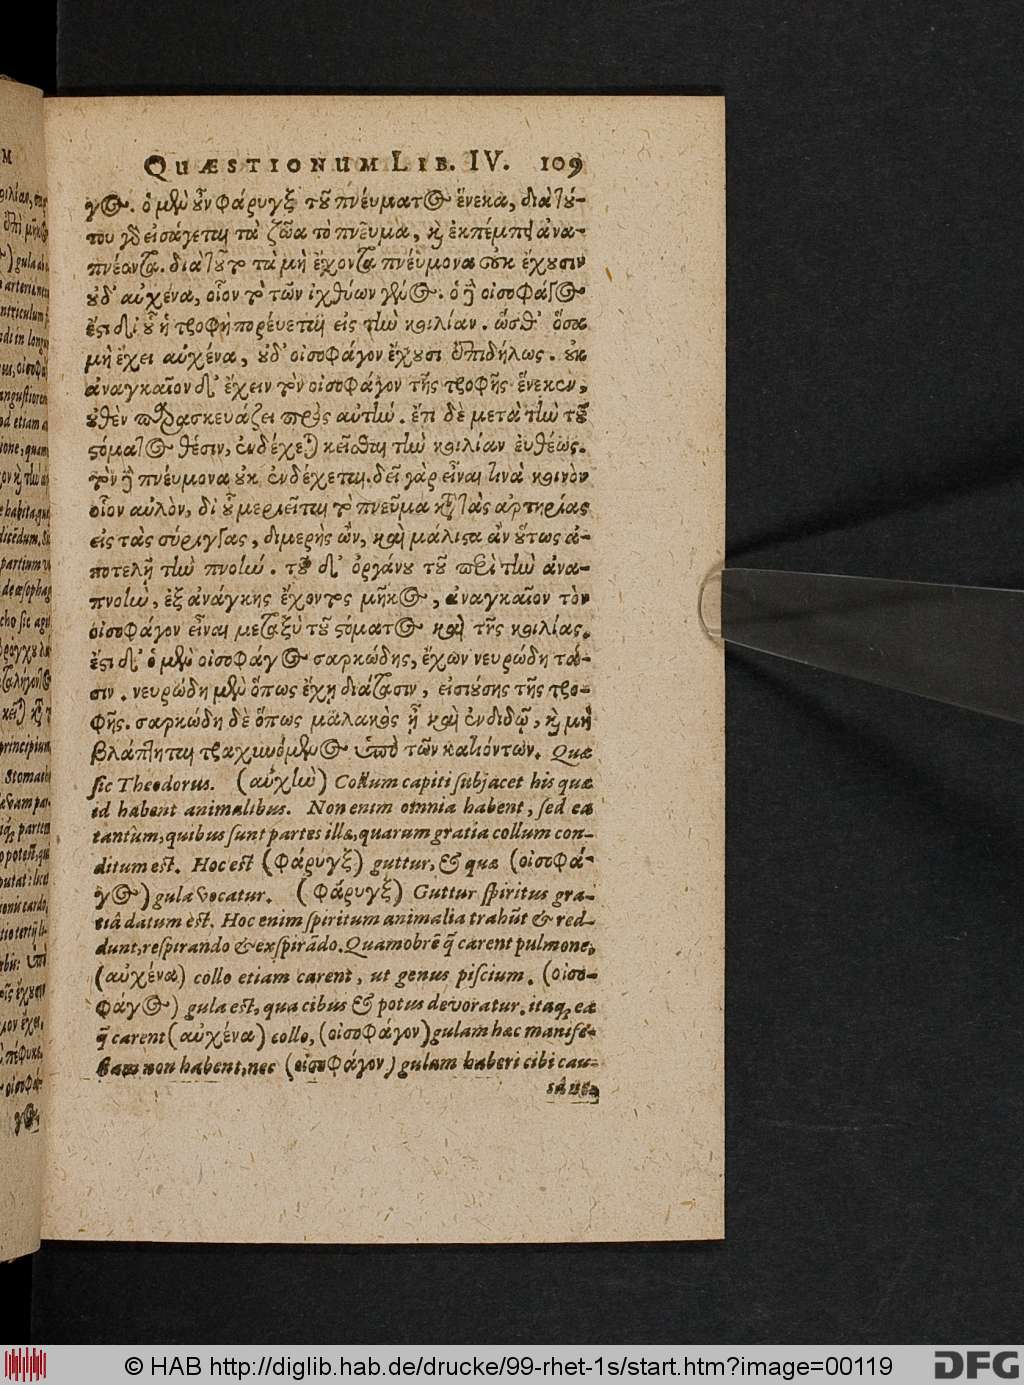 QUÆSTIONUM LIB. IV. 109
γος. ὁ μὲν οὖν φάρυγξ τοῦ πνεύματος ἕνεκα, διὰ τού-
του γὰρ εἰσάγεται τὰ ζῶα τὸ πνεῦμα, καὶ ἐκπέμπει ἀνα-
πνέοντα. διὰ τοῦτο τὰ μὴ ἔχοντα πνεύμονα οὐκ ἔχουσιν
οὐδ᾽ αὐχένα, οἷον τὸ τῶν ἰχθύων γένος. ὁ δὲ οἰσοφάγος
ἔστι δι᾽ οὗ ἡ τροφὴ πορεύεται εἰς τὴν κοιλίαν. ὥσθ᾽ ὅσα
μὴ ἔχει αὐχένα, οὐδ᾽ οἰσοφάγον ἔχουσι ἐπιδήλως. οὐκ
ἀναγκαῖον δ᾽ ἔχειν τὸν οἰσοφάγον τῆς τροφῆς ἕνεκεν,
οὐθὲν παρασκευάζει πρὸς αὐτήν. ἔτι δὲ μετὰ τὴν τοῦ
στόματος θέσιν, ἐνδέχεται κεῖσθαι τὴν κοιλίαν εὐθέως.
τὸν δὲ πνεύμονα οὐκ ἐνδέχεται. δεῖ γὰρ εἶναι τινὰ κοινὸν
οἷον αὐλὸν, δι᾽ οὗ μεριεῖται τὸ πνεῦμα κατὰ τὰς ἀρτηρίας
εἰς τὰς σύριγγας, διμερὴς ὢν, καὶ μάλιστα ἂν οὕτως ἀ-
ποτελῇ τὴν πνοιὴν. τοῦ δ᾽ ὀργάνου τοῦ περὶ τὴν ἀνα-
πνοὴν, ἐξ ἀνάγκης ἔχοντος μῆκος, ἀναγκαῖον τὸν
οἰσοφάγον εἶναι μεταξὺ τοῦ στόματος καὶ τῆς κοιλίας.
ἔστι δ᾽ ὁ μὲν οἰσοφάγος σαρκώδης, ἔχων νευρώδη τά-
σιν. νευρώδη μὲν ὅπως ἔχῃ διάτασιν, εἰσιούσης τῆς τρο-
φῆς. σαρκώδη δὲ ὅπως μαλακὸς ᾖ καὶ ἐνδιδῷ, καὶ μὴ
βλάπτηται τραχυνόμενος ὑπὸ τῶν κατιόντων. Quæ
sic Theodorus. (αὐχὴν) Collum capiti subjacet his quæ
id habent animalibus. Non enim omnia habent, sed ea
tantùm, quibus sunt partes illæ, quarum gratia collum con-
ditum est. Hoc est (φάρυγξ) guttur, & quæ (οἰσοφά-
γος) gula vocatur. (φάρυγξ) Guttur spiritus gra-
tiâ datum est. Hoc enim spiritum animalia trahūt & red-
dunt, respirando & exspirādo. Quamobrē q̃ carent pulmone,
(αὐχένα) collo etiam carent, ut genus piscium. (οἰσο-
φάγος) gula est, qua cibus & potus devoratur. itaq; ea
q̃ carent (αὐχένα) collo, (οἰσοφάγον) gulam hac manife-
stam non habent, nec (οἰσοφάγον) gulam haberi cibi cau-
sâ ne-
© HAB http://diglib.hab.de/drucke/99-rhet-1s/start.htm?image=00119
DFG